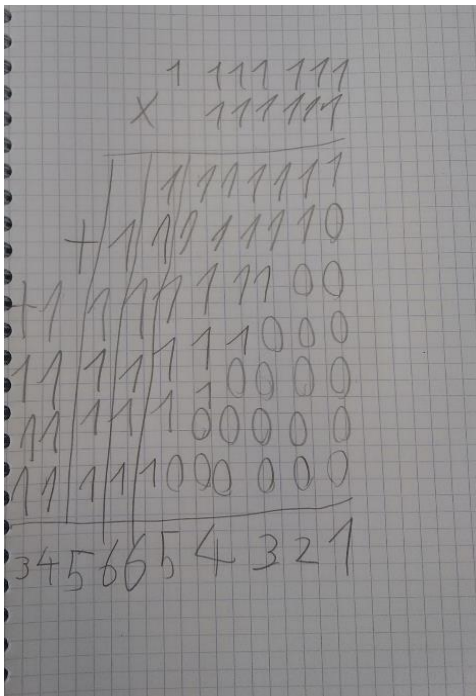 1 111 111
X 111111
1111111
+ 11111110
+1 111111 00
11 11111000
11 11110000
11 11100000
11 111000000
3456654321